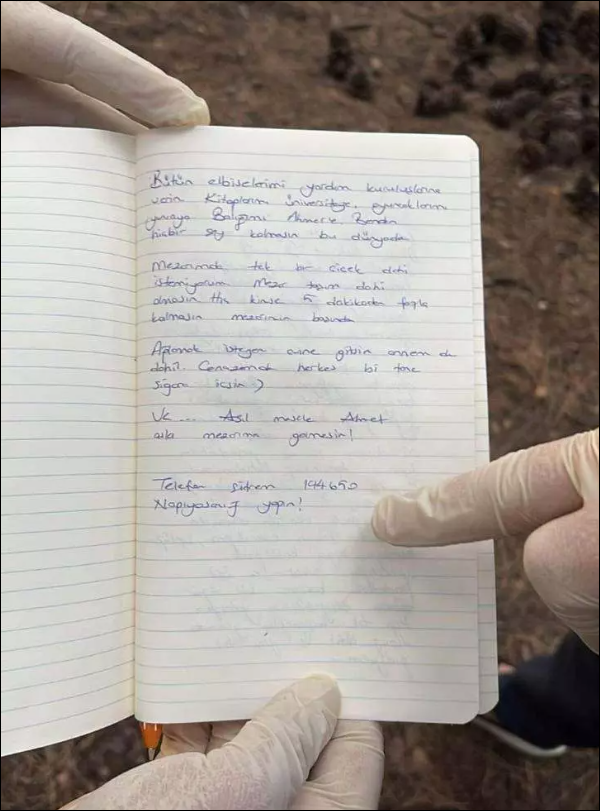 Bütün elbiselerimi yardım kuruluşlarına
verin Kitaplarım üniversiteye, oyuncaklarım
yuvaya Balığımı Ahmet'e. Benden
hiçbir şey kalmasın bu dünyada
Mezarımda tek bir çiçek dahi
istemiyorum Mezar taşım dahi
olmasın Hiç kimse 5 dakikadan fazla
kalmasın mezarımın başında
Ağlamak isteyen evine gitsin annem de
dahil. Cenazemde herkes bi tane
sigara içsin )
Ve... Asıl mesele Ahmet
asla mezarıma gelmesin!
Telefon şifrem 194650
Napıyosanız yapın!